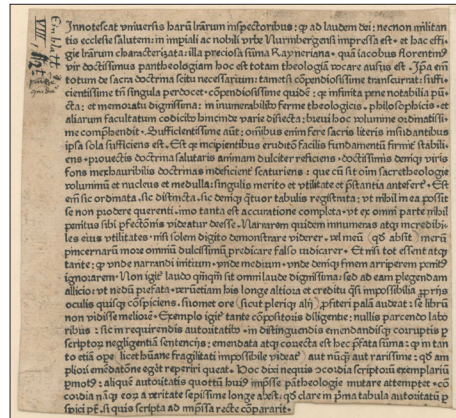 Innotescat vniuersis harū lr̄arum inspectoribus: ꝙ ad laudem dei: necnon militan
tis ecclesie salutem: in imꝑiali ac nobili vrbe Nurmbergensi impressa est: et hac effi-
gie lr̄arum characterizata: illa preciosa sūma Rayneriana. quā iacobus florentinꝰ
vir doctissimus pantheologiam hoc est totam theologiā vocare ausus est. Ipa em̄
totum de sacra doctrina scitu necessarium: tametsi cōpendiosissime transcurrat: suffi-
cientissime tn̄ singula perdocet. cōpendiosissime quidē: ꝙ infinita pene notabilia pū-
cta: et memoratu dignissima: in inumerabilibꝰ ferme theologicis. philosophicis. et
aliarum facultatum codicibꝰ hincinde varie dissecta: breui hoc volumine ordinatissi-
me comp̄hendit. Sufficientissime aūt: oīnibus enim fere sacris literis insudantibus
ipsa sola sufficiens est. Est ꝙ incipientibus eruditō facilis fundamentū firmit̄ stabili-
ens. prouectis doctrina salutaris animam dulciter reficiens. doctissimis deniqꝫ viris
fons inexhauribilis doctrinas indeficient̄ scaturiens: que cū sit oīm sacre theologie
voluminū et nucleus et medulla: singulis merito et vtilitate et p̄stantia antefert̄. Est
em̄ sic ordinata, sic distincta, sic deniqꝫ q̄tuor tabulis registrata: vt nihil in ea possit
se non prodere querenti. imo tanta est accuratione completa. vt ex omni parte nihil
penitus sibi ꝑfectōnis videatur deesse. Narrarem quidem innumeras atqꝫ incredibi-
les eius vtilitates. nisi solem digito demonstrare viderer. vel meū (qd̄ absit) merū
pincernarū more omniū dulcissimū predicare falso iudicarer. Et nisi tot essent atqꝫ
tante: ꝙ vnde narrandi initium. vnde medium. vnde deniqꝫ finem arriperem penitꝰ
ignorarem. Non igit̄ laudo q̄nqm̄ sit omni laude dignissima: sed ad eam plegendam
allicio: vt nedū p̄fata. verūetiam his longe altiora et creditu q̄si impossibilia ꝓprijs
oculis quisqꝫ cōspiciens. suomet ore (sicut pleriqꝫ alij) ꝓfiteri palā audeat: se librū
non vidisse meliorē. Exemplo igit̄ tante cōpositoris diligentie: nullis parcendo labo
ribus: sic in requirendis autoritatibꝰ. in distinguendis emendandisqꝫ coruptis ꝑ
scriptoꝝ negligentiā sentencijs: emendata atqꝫ correcta est hec p̄fata sūma: ꝙ in tan
to etiā ope licet hūane fragilitati impossibile videat̄ aut nūqꝫ aut rarissime: qd̄ am
pliori emēdatōne eget reperiri queat. Hoc dixi nequis ꝯcordia scriptorū exemplariū
ꝑmotꝰ: aliquē autoritatis quottū huiꝰ imp̄sse pātheologie mutare attemptet. cō
cordia nāqꝫ eoꝝ a veritate sepissime longe abest. qd̄ clare in p̄ma tabula autoritatū ꝑ
spici pt̄. si quis scripta ad imp̄ssa recte cōpararit.
Einblatt
VIII